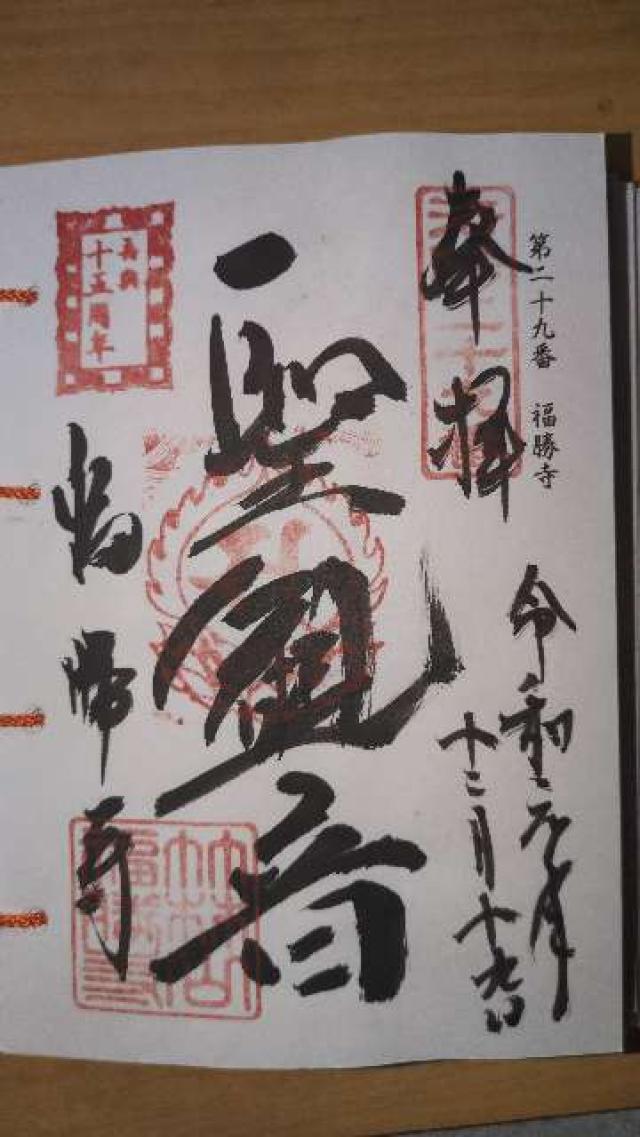 第二十九番 福勝寺
奉拝
令和元年
十二月十九日
聖観音
福勝寺
十五周年